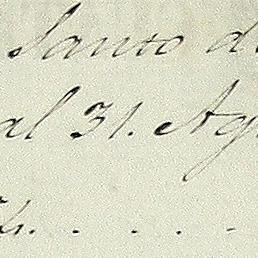 Santo d
al 31. Ag
. . . .